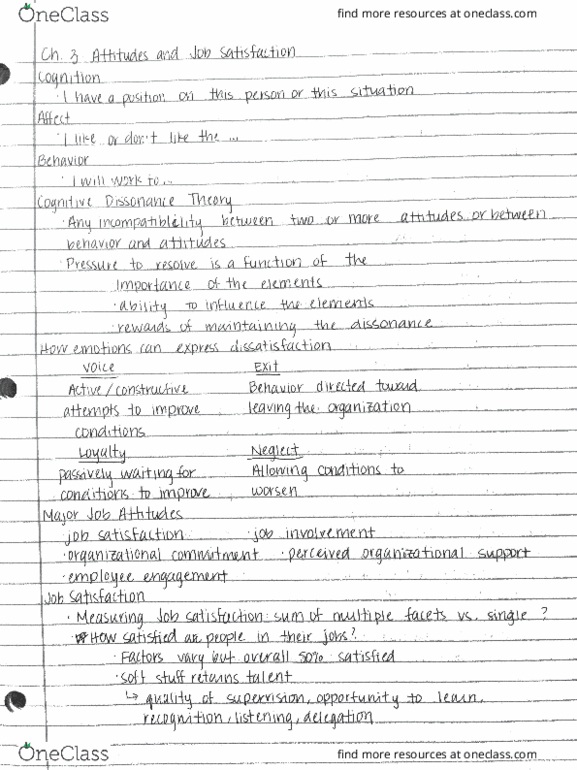 OneClass
find more resources at oneclass.com
Ch. 3 Attitudes and Job Satisfaction
Cognition
· I have a position on this person or this situation
Affect
· I like or don't like the ...
Behavior
· I will work to...
Cognitive Dissonance Theory
· Any incompatibility between two or more attitudes or between
behavior and attitudes
· Pressure to resolve is a function of the
importance of the elements
· ability to influence the elements
· rewards of maintaining the dissonance
How emotions can express dissatisfaction
Voice Exit
Active/constructive Behavior directed toward
attempts to improve leaving the organization
conditions
Loyalty Neglect
passively waiting for Allowing conditions to
conditions to improve worsen
Major Job Attitudes
job satisfaction · job involvement
· organizational commitment · perceived organizational support
· employee engagement
Job Satisfaction
· Measuring Job satisfaction: sum of multiple facets vs. single?
· How satisfied are people in their jobs?
· Factors vary but overall 50% satisfied
· soft stuff retains talent
↳ quality of supervision, opportunity to learn,
recognition, listening, delegation
OneClass
find more resources at oneclass.com